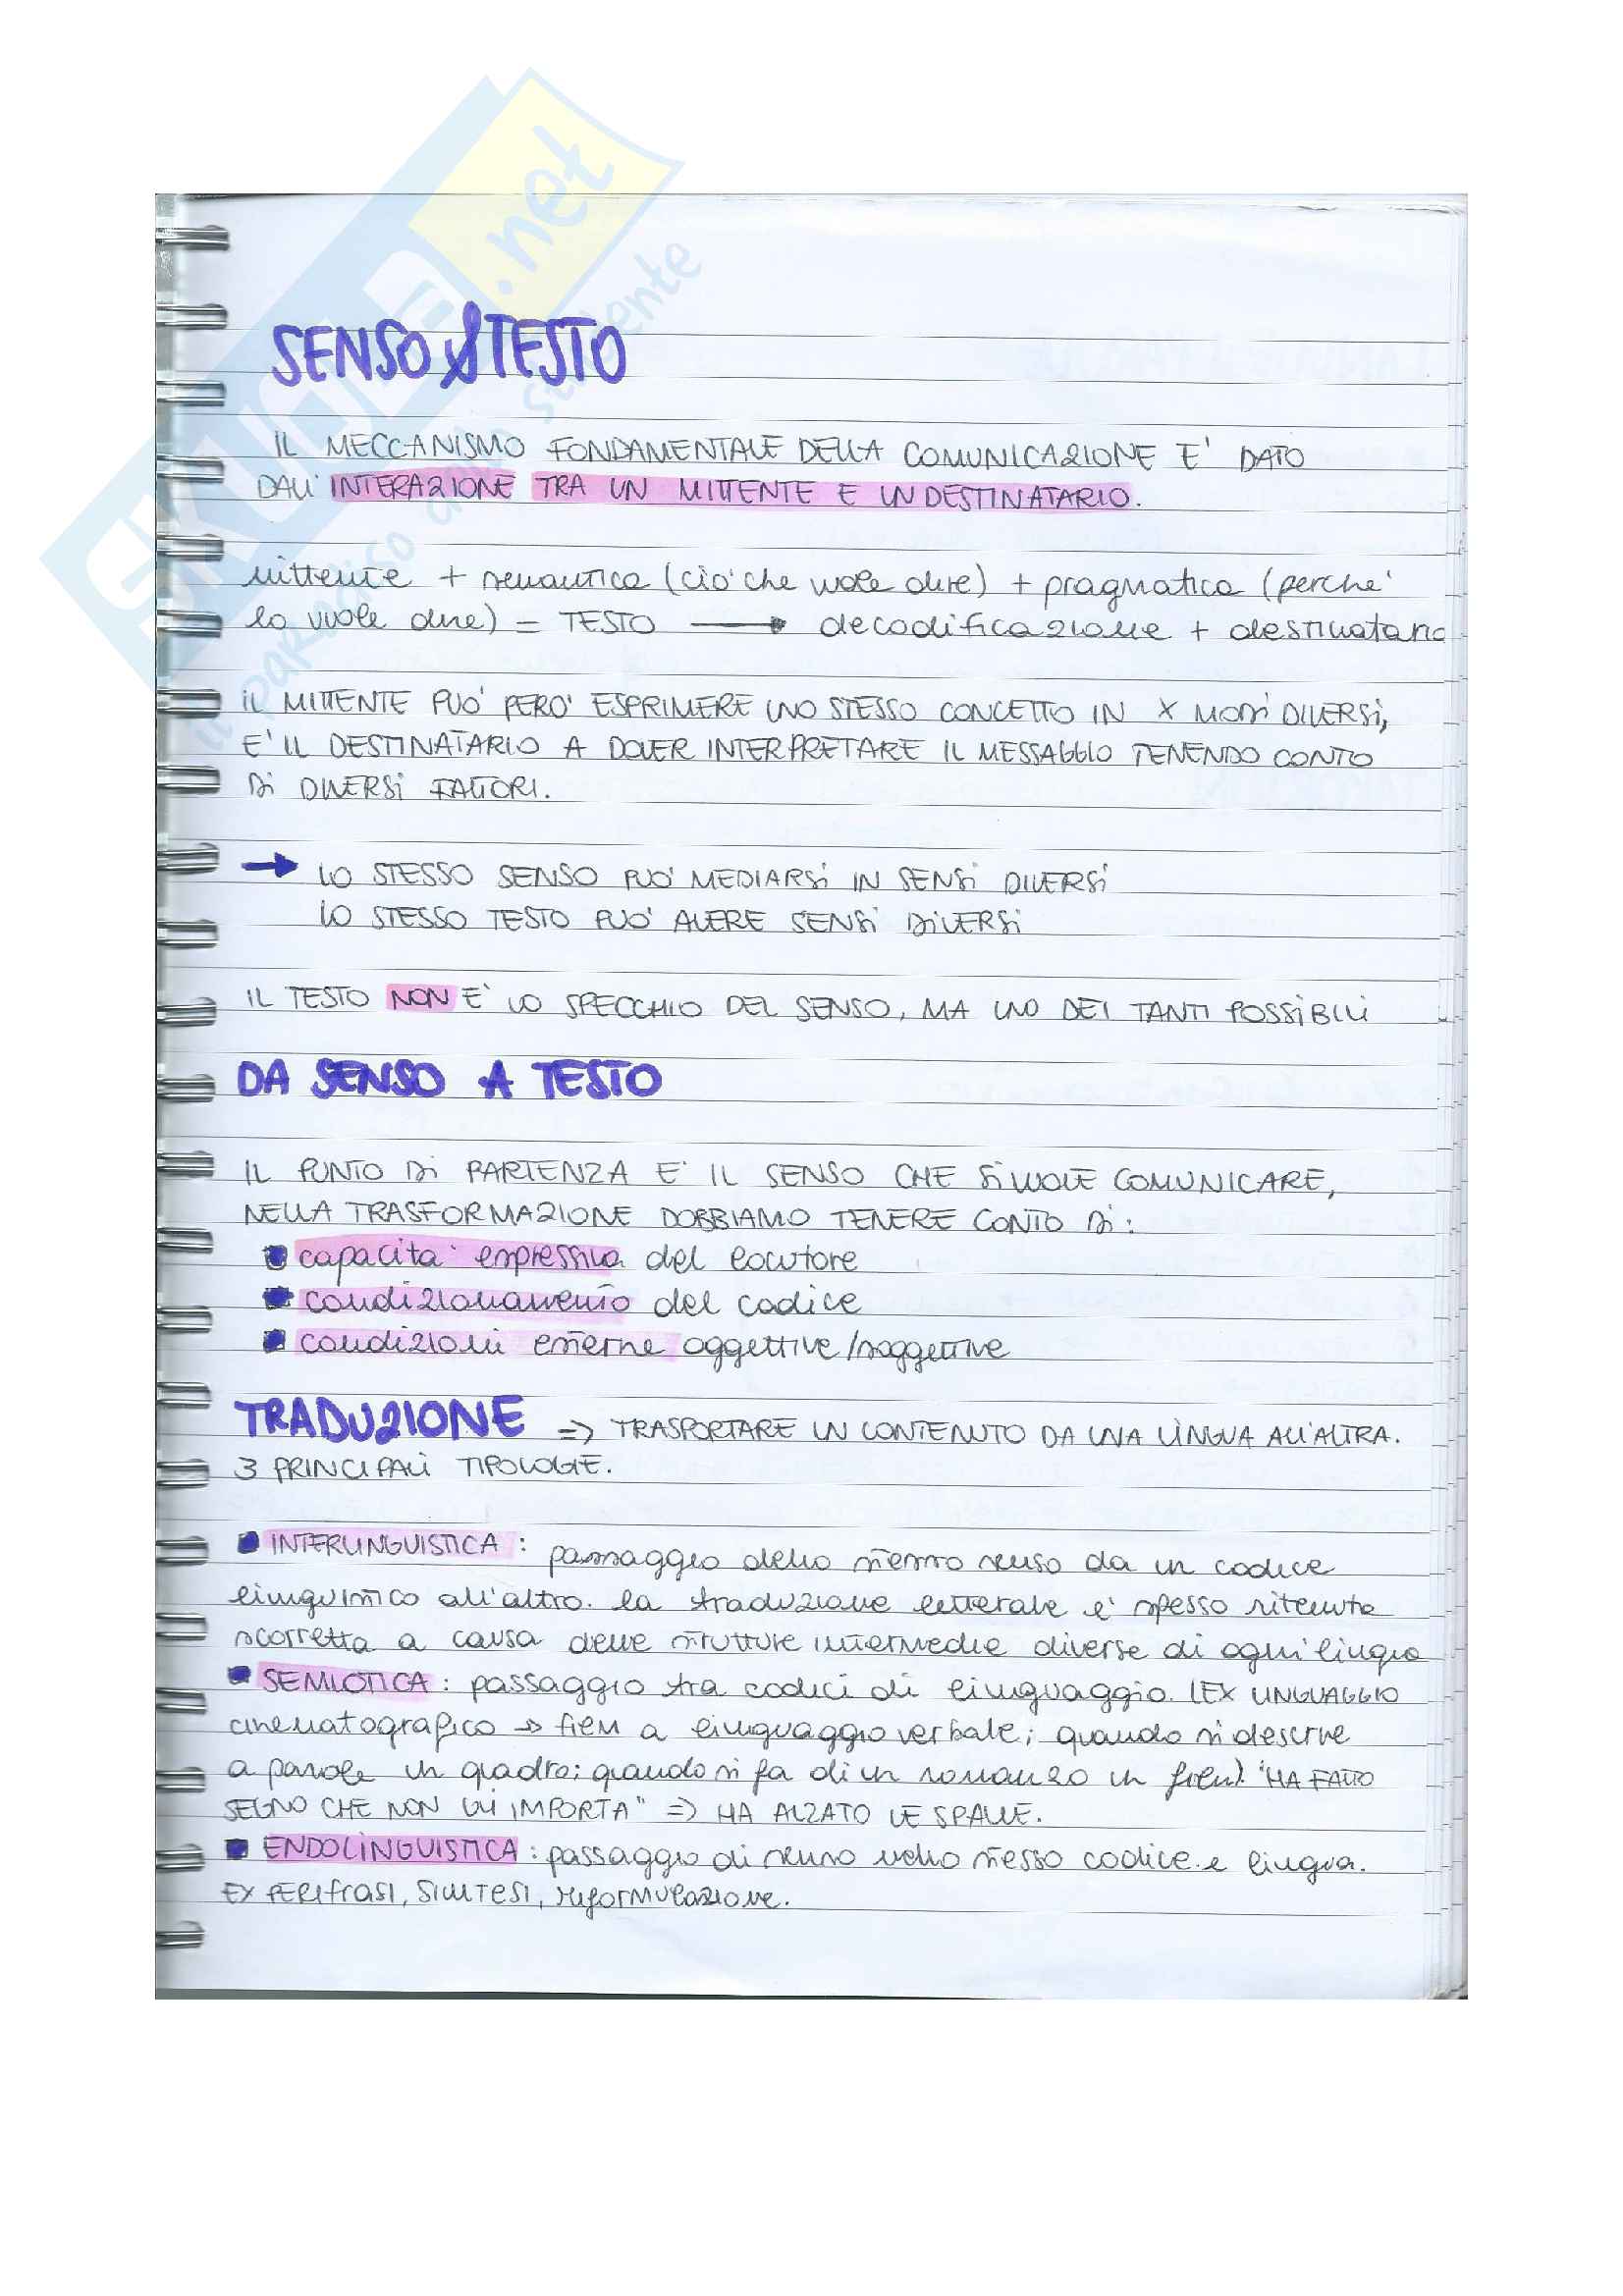 SKUOLA.net
il paradiso dello studente
SENSO & TESTO
IL MECCANISMO FONDAMENTALE DELLA COMUNICAZIONE E' DATO
DALL'INTERAZIONE TRA UN MITTENTE E UN DESTINATARIO.
mittente + semantica (ciò che vuole dire) + pragmatica (perche'
lo vuole dire) = TESTO → decodificazione + destinatario
IL MITTENTE PUO' PERO' ESPRIMERE UNO STESSO CONCETTO IN X MODI DIVERSI,
E' IL DESTINATARIO A DOVER INTERPRETARE IL MESSAGGIO TENENDO CONTO
DI DIVERSI FATTORI.
→ LO STESSO SENSO PUO' MEDIARSI IN SENSI DIVERSI
LO STESSO TESTO PUO' AVERE SENSI DIVERSI
IL TESTO NON E' LO SPECCHIO DEL SENSO, MA UNO DEI TANTI POSSIBILI
DA SENSO A TESTO
IL PUNTO DI PARTENZA E' IL SENSO CHE SI VUOLE COMUNICARE,
NELLA TRASFORMAZIONE DOBBIAMO TENERE CONTO DI:
capacita' espressiva del locutore
condizionamento del codice
condizioni esterne oggettive/soggettive
TRADUZIONE => TRASPORTARE UN CONTENUTO DA UNA LINGUA ALL'ALTRA.
3 PRINCIPALI TIPOLOGIE.
INTERLINGUISTICA: passaggio dello stesso senso da un codice
linguistico all'altro. la traduzione letterale e' spesso ritenuta
scorretta a causa delle strutture intermedie diverse di ogni lingua
SEMIOTICA: passaggio tra codici di linguaggio. (EX LINGUAGGIO
cinematografico → film a linguaggio verbale; quando si descrive
a parole un quadro; quando si fa di un romanzo un film). "HA FATTO
SEGNO CHE NON GLI IMPORTA" => HA ALZATO LE SPALLE.
ENDOLINGUISTICA: passaggio di senso nello stesso codice e lingua.
EX PERIfrasi, SINTESI, riformulazione.